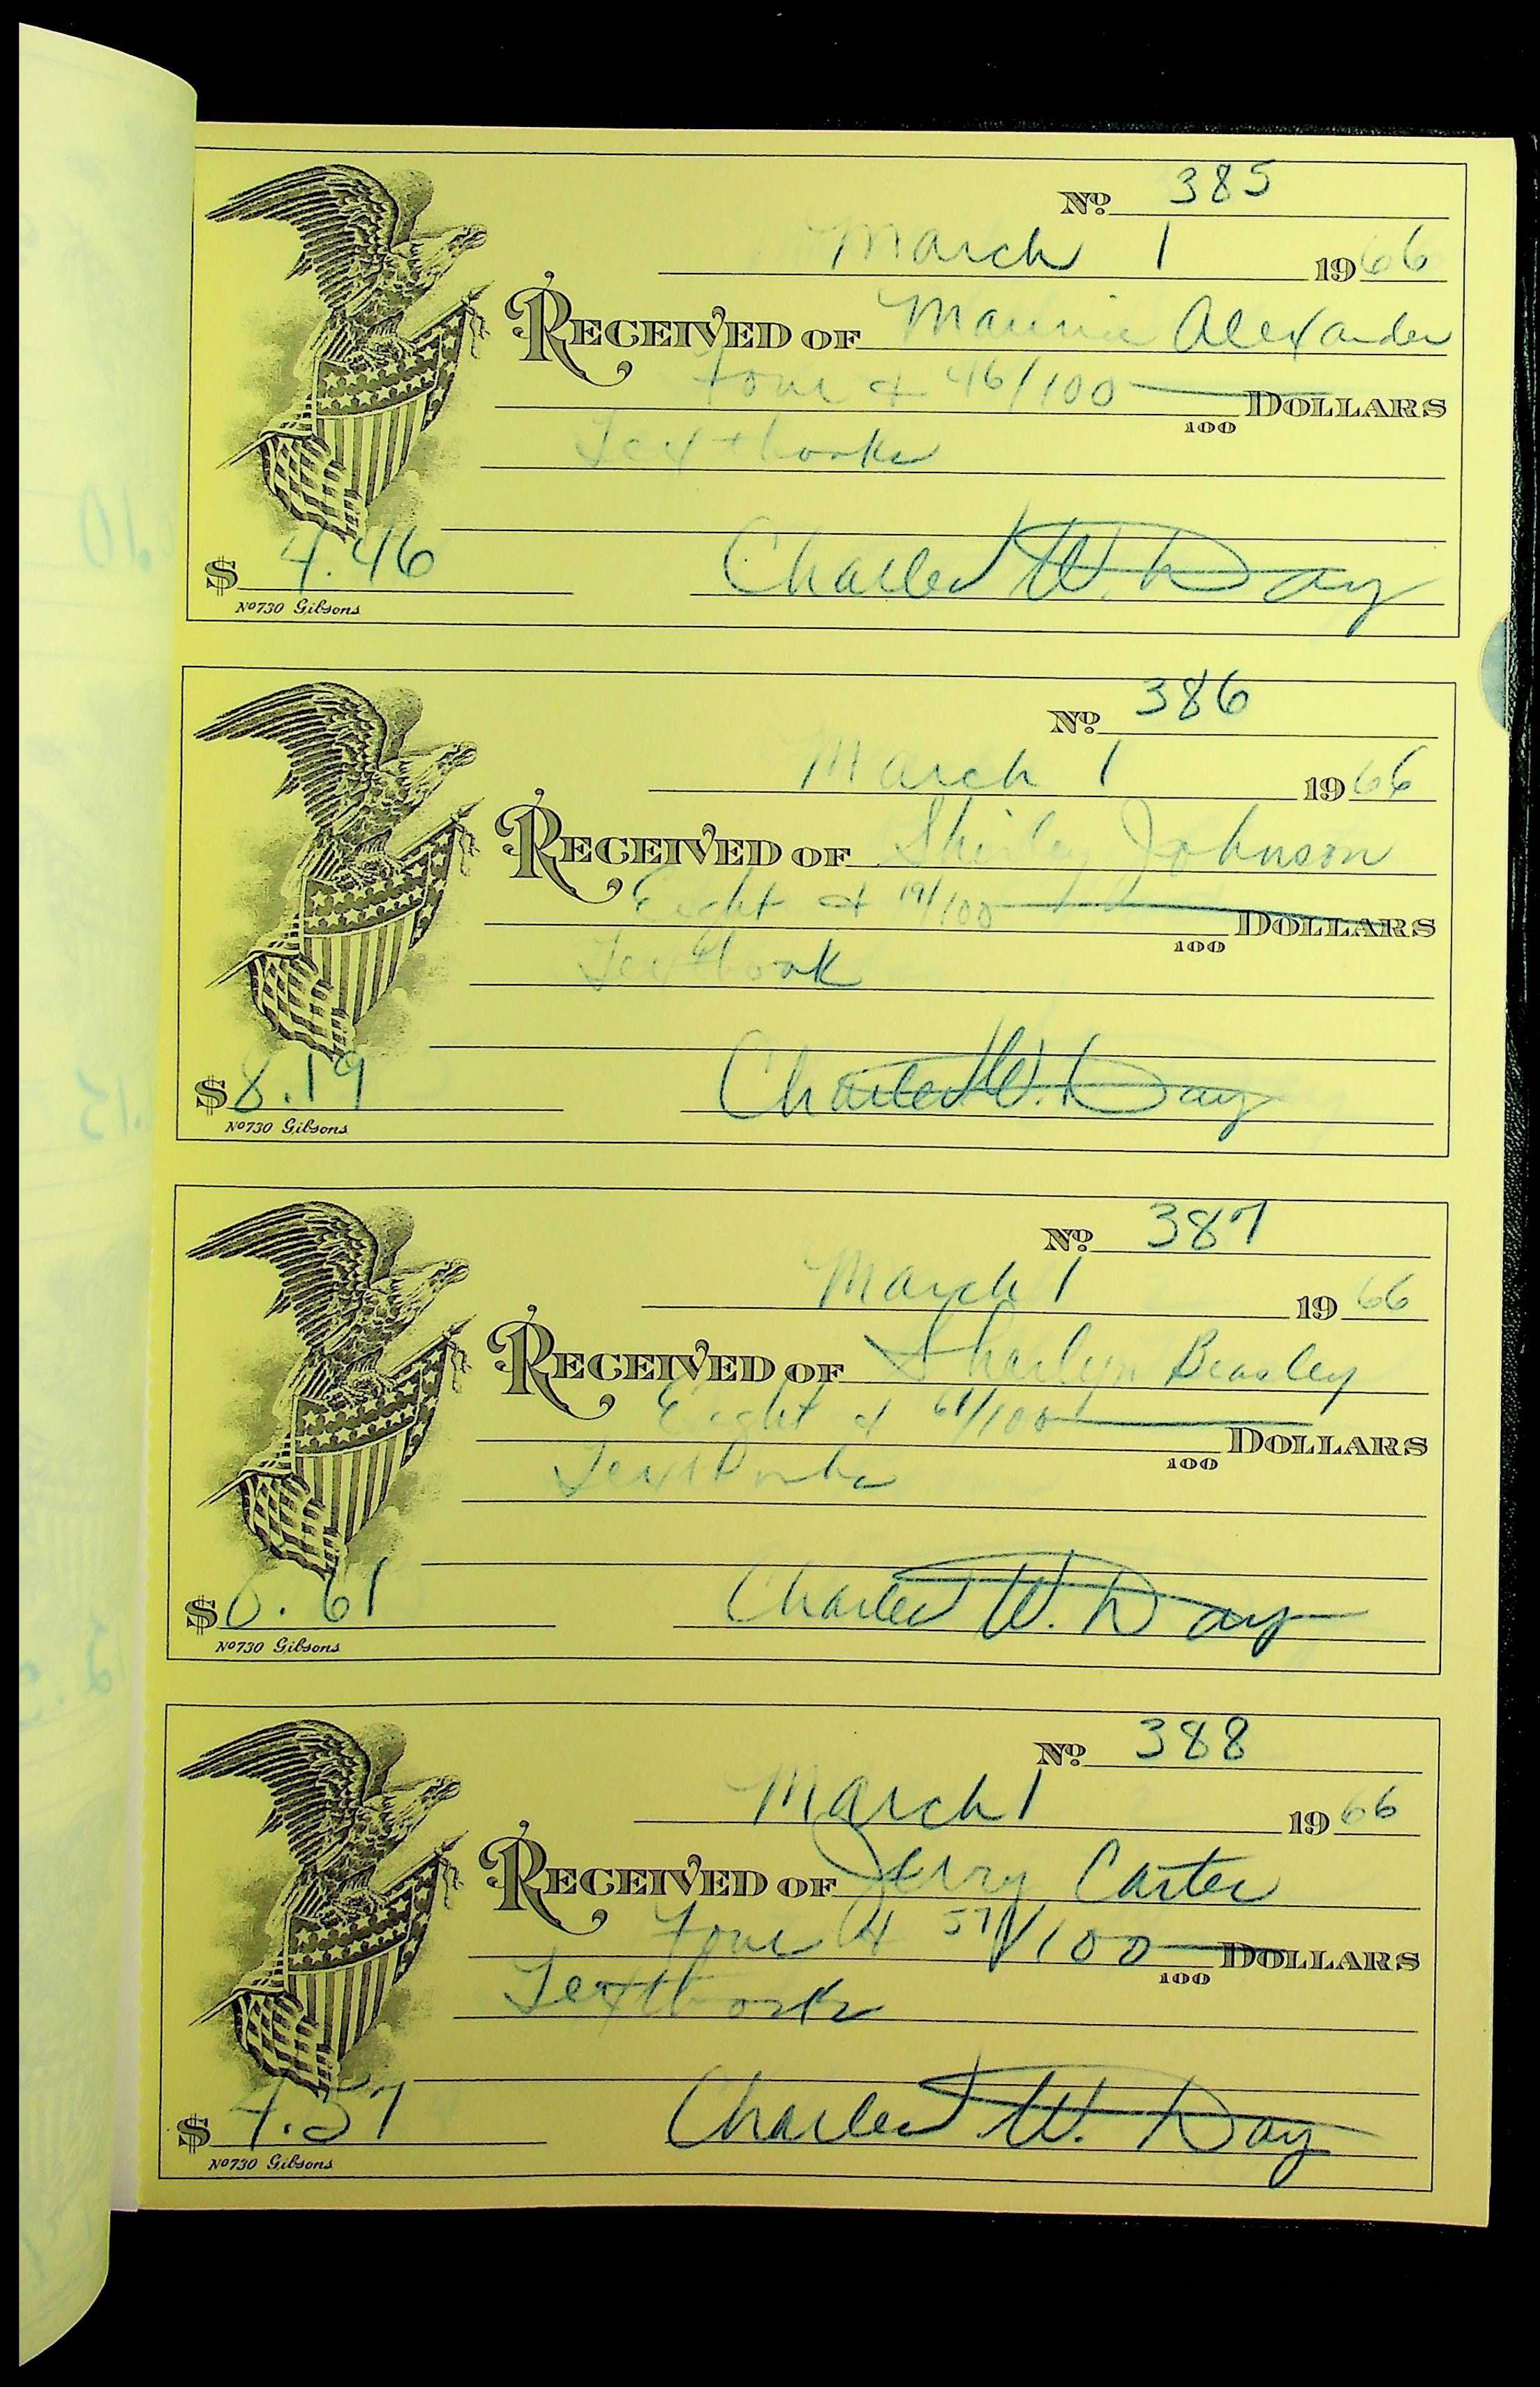 No. 385
March 1 1966
RECEIVED OF Alexander
Four & 46/100 DOLLARS
100
Textbooks
$ 4.46 Charles W. Day
No 730 Gibsons
No. 386
March 1 1966
RECEIVED OF Shirley Johnson
Eight & 19/100 DOLLARS
100
Textbook
$ 8.19 Charles W. Day
No 730 Gibsons
No. 387
March 1 1966
RECEIVED OF Sharlyn Beasley
Eight & 61/100 DOLLARS
100
Textbooks
$ .61 Charles W. Day
No 730 Gibsons
No. 388
March 1 1966
RECEIVED OF Jerry Carter
Four & 57/100 DOLLARS
100
Textbooks
$ 4.57 Charles W. Day
No 730 Gibsons